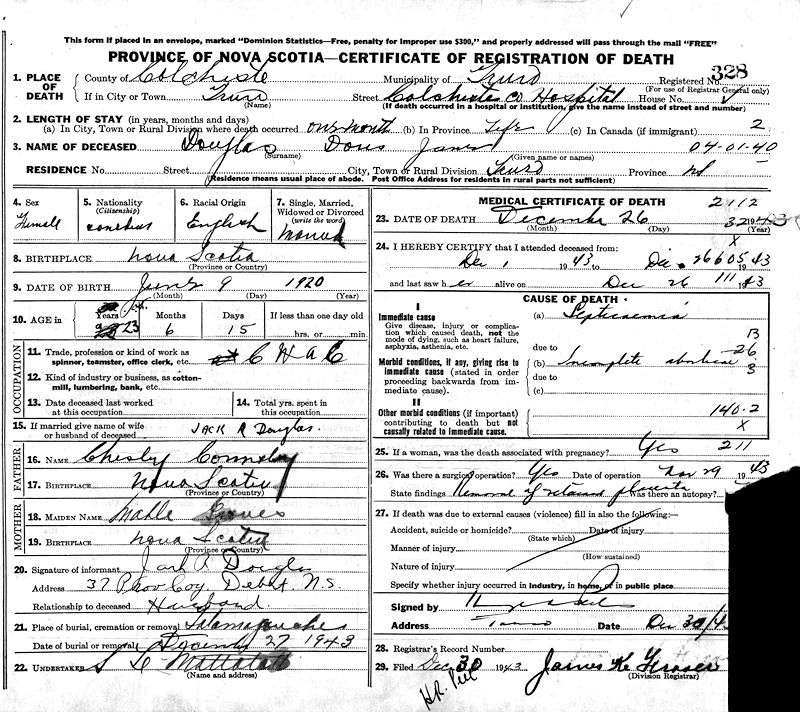 This form if placed in an envelope, marked "Dominion Statistics—Free, penalty for improper use $300," and properly addressed will pass through the mail "FREE"
PROVINCE OF NOVA SCOTIA—CERTIFICATE OF REGISTRATION OF DEATH
328
1. PLACE OF DEATH County of Colchester Municipality of Truro Registered No.
(For use of Registrar General only)
If in City or Town Truro Street Colchester Co Hospital House No.
(Name) (If death occurred in a hospital or institution, give the name instead of street and number)
2. LENGTH OF STAY (in years, months and days)
(a) In City, Town or Rural Division where death occurred one month (b) In Province Life (c) In Canada (if immigrant) 2
3. NAME OF DECEASED Douglas Doris 04-01-40
(Surname) (Given name or names)
RESIDENCE No. Street City, Town or Rural Division Truro Province NS
(Residence means usual place of abode. Post Office Address for residents in rural parts not sufficient)
4. Sex
Female
5. Nationality
(Citizenship)
6. Racial Origin
English
7. Single, Married, Widowed or Divorced
(write the word)
Married
8. BIRTHPLACE Nova Scotia
(Province or Country)
9. DATE OF BIRTH June 9 1920
(Month) (Day) (Year)
10. AGE in Years Months Days If less than one day old
23 6 15 hrs. or min.
OCCUPATION
11. Trade, profession or kind of work as spinner, teamster, office clerk, etc. C W A C
12. Kind of industry or business, as cotton-mill, lumbering, bank, etc.
13. Date deceased last worked at this occupation
14. Total yrs. spent in this occupation
15. If married give name of wife or husband of deceased JACK R Douglas.
FATHER
16. NAME Chesley
17. BIRTHPLACE Nova Scotia
(Province or Country)
MOTHER
18. MAIDEN NAME
19. BIRTHPLACE Nova Scotia
(Province or Country)
20. Signature of informant Jack R Douglas
Address 37 Coy, Debert, N.S.
Relationship to deceased Husband.
21. Place of burial, cremation or removal Tatamagouche
Date of burial or removal December 27 1943
22. UNDERTAKER
(Name and address)
MEDICAL CERTIFICATE OF DEATH
2112
23. DATE OF DEATH December 26 1943
(Month) (Day) (Year)
32
X
24. I HEREBY CERTIFY that I attended deceased from:
Dec 1 1943 to Dec. 26 1943
605
and last saw her alive on Dec 26 1943
111
CAUSE OF DEATH
I
Immediate cause
Give disease, injury or complication which caused death, not the mode of dying, such as heart failure, asphyxia, asthenia, etc.
(a) Septicaemia
due to
Morbid conditions, if any, giving rise to immediate cause (stated in order proceeding backwards from immediate cause).
(b) Incomplete
due to
(c)
II
Other morbid conditions (if important) contributing to death but not causally related to immediate cause.
140.2
X
25. If a woman, was the death associated with pregnancy? Yes 211
26. Was there a surgical operation? Yes Date of operation Nov 29 1943
State findings Removal of retained placenta Was there an autopsy?
27. If death was due to external causes (violence) fill in also the following:—
Accident, suicide or homicide? Date of injury
(State which)
Manner of injury
(How sustained)
Nature of injury
Specify whether injury occurred in industry, in home, or in public place
Signed by
Address Truro Date Dec 30/4
28. Registrar's Record Number
29. Filed Dec 30 1943
(Division Registrar)